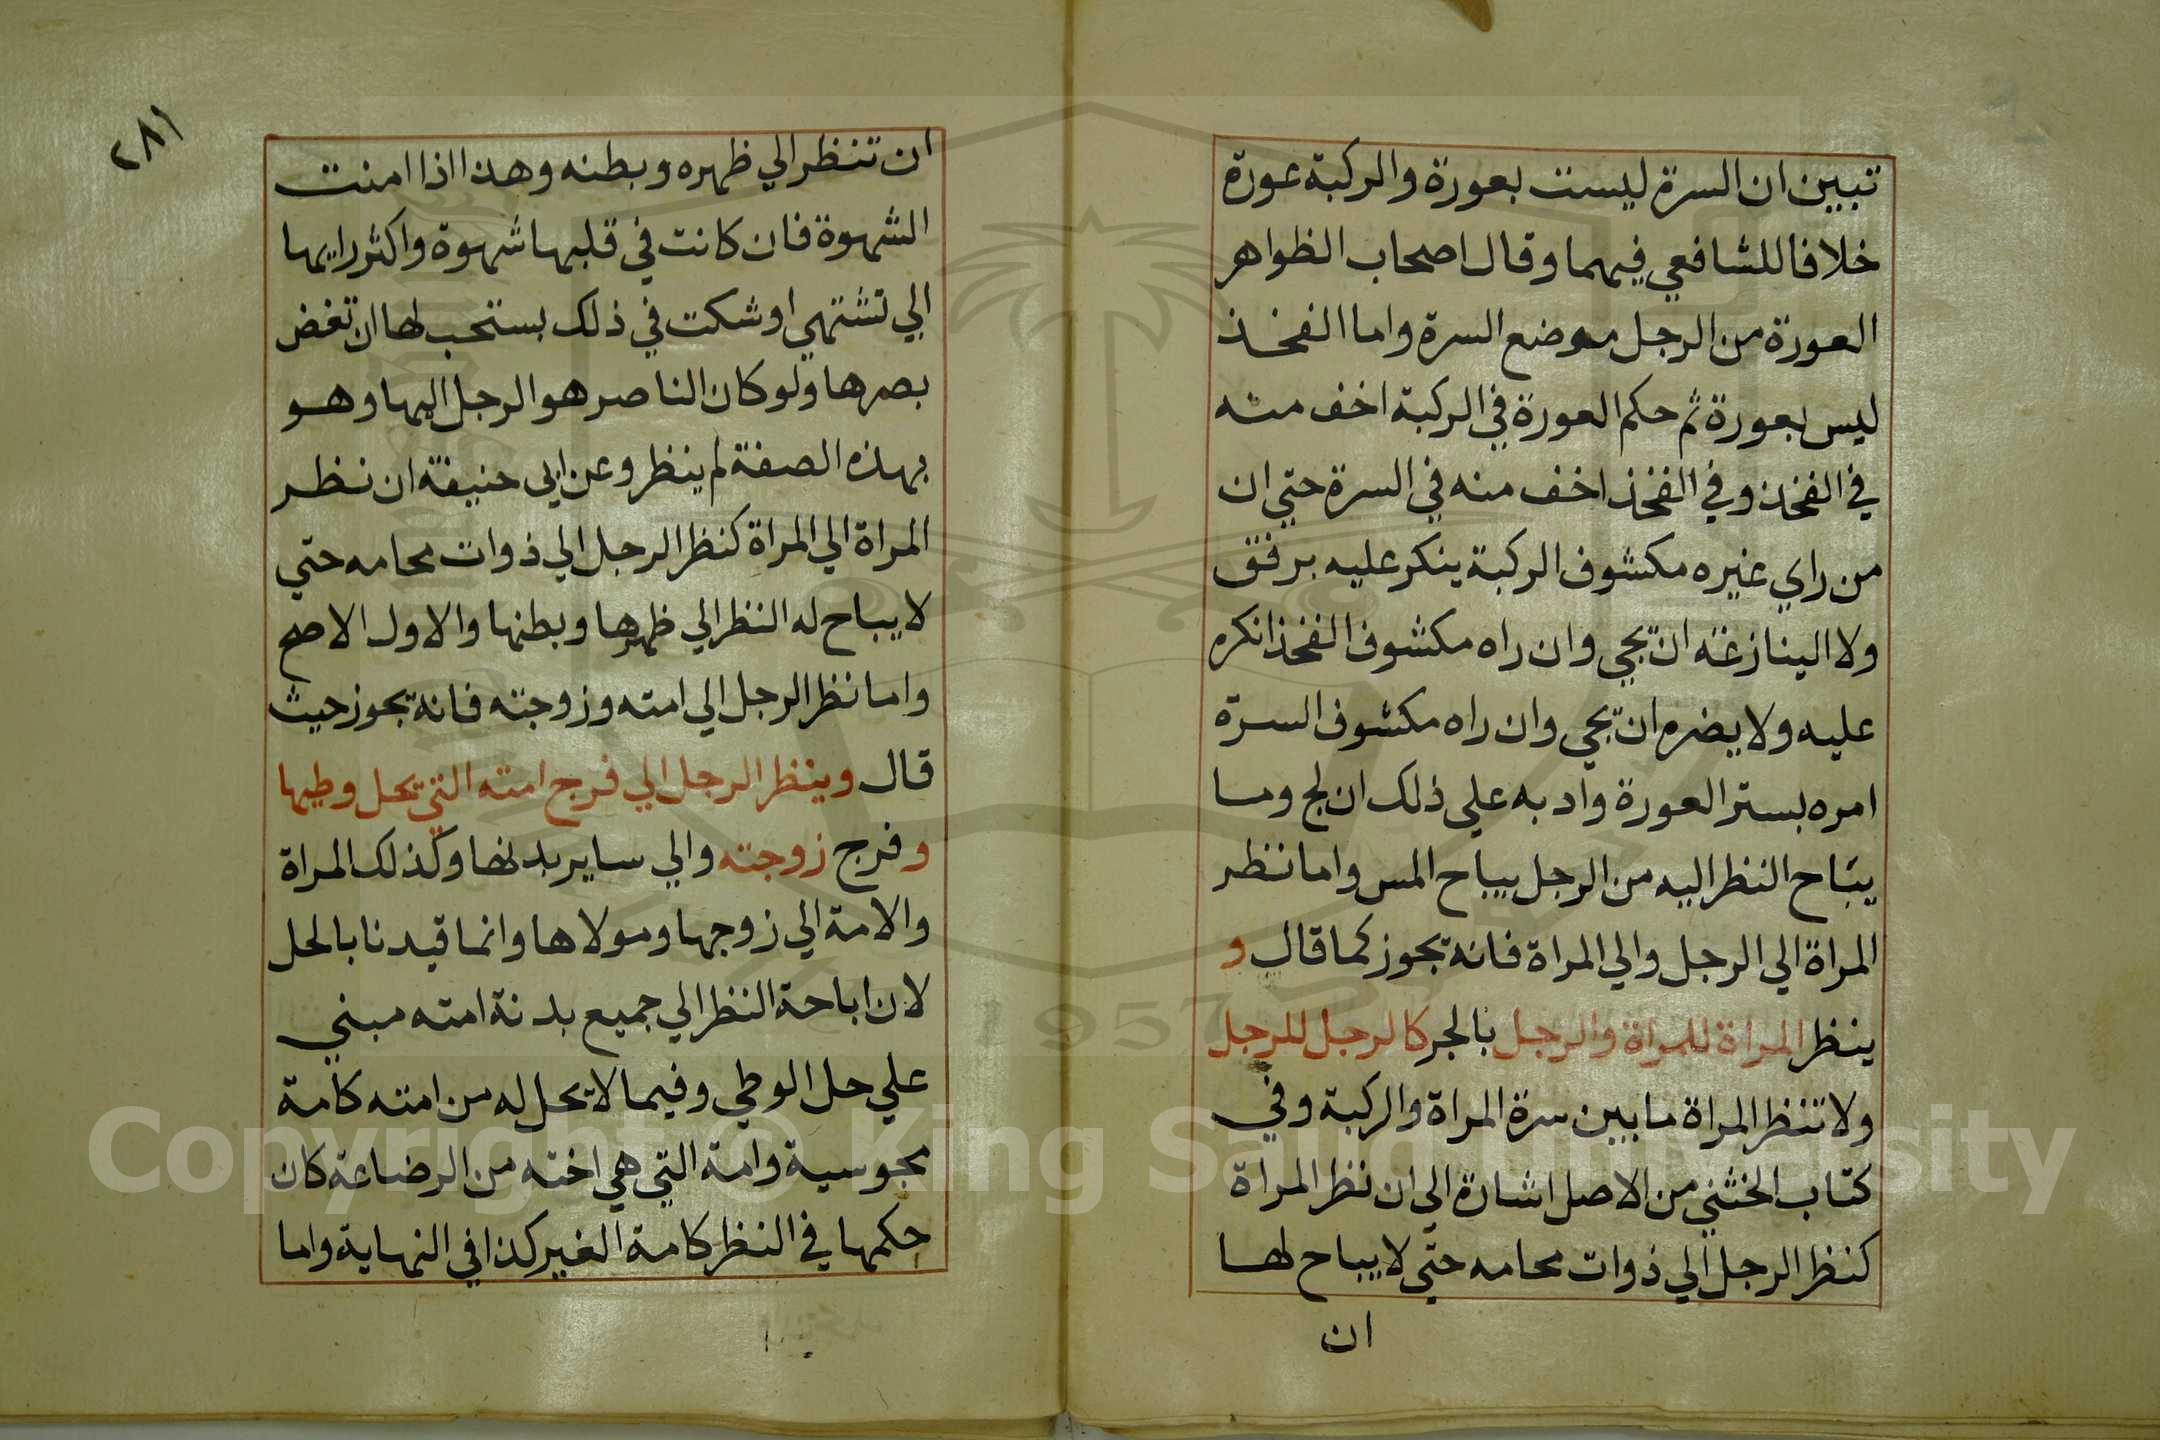 تبين ان السرة ليست بعورة والركبة عورة
خلافا للشافعي فيهما وقال اصحاب الظواهر
العورة من الرجل موضع السرة واما الفخذ
ليس بعورة ثم حكم العورة في الركبة اخف منه
في الفخذ وفي الفخذ اخف منه في السرة حتي ان
من راي غيره مكشوف الركبة ينكر عليه برفق
ولا ينازعه ان تجي وان راه مكشوف الفخذ انكره
عليه ولا يضره ان تجي وان راه مكشوف السرة
امره بستر العورة وادبه علي ذلك ان لج وما
يباح النظر اليه من الرجل يباح المس واما نظر
المراة الي الرجل والي المراة فانه تجوز كما قال و
ينظر المراة للمراة والرجل بالجر كالرجل للرجل
ولا تنظر المراة ما بين سرة المراة والركبة وفي
كتاب الخنثي من الاصل اشارة الي ان نظر المراة
كنظر الرجل الي ذوات محامه حتي لا يباح لها
ان
٢٨١
ان تنظر الي ظهره وبطنه وهذا اذا امنت
الشهوة فان كانت في قلبها شهوة واكثر رايها
الي تشتهي او شكت في ذلك بستحب لها ان تغض
بصرها ولو كان الناصر هو الرجل اليها وهو
بهذه الصفة لم ينظر وعن ابي حنيفة ان نظر
المراة الي المراة كنظر الرجل الي ذوات محامه حتي
لا يباح له النظر الي ظهرها وبطنها والاول الاصح
واما نظر الرجل الي امته وزوجته فانه تجوز حيث
قال وينظر الرجل الي فرج امته التي يحل وطيها
وفرج زوجته والي ساير بدنها وكذلك المراة
والامة الي زوجها ومولاها وانما قيدنا بالحل
لان اباحة النظر الي جميع بدنة امته مبني
علي حل الوطي وفيما لا يحل له من امته كامة
مجوسية وامة التي هي اخته من الرضاعة كان
حكمها في النظر كامة الغير كذا في النهاية واما
1957
Copyright © King Saud University